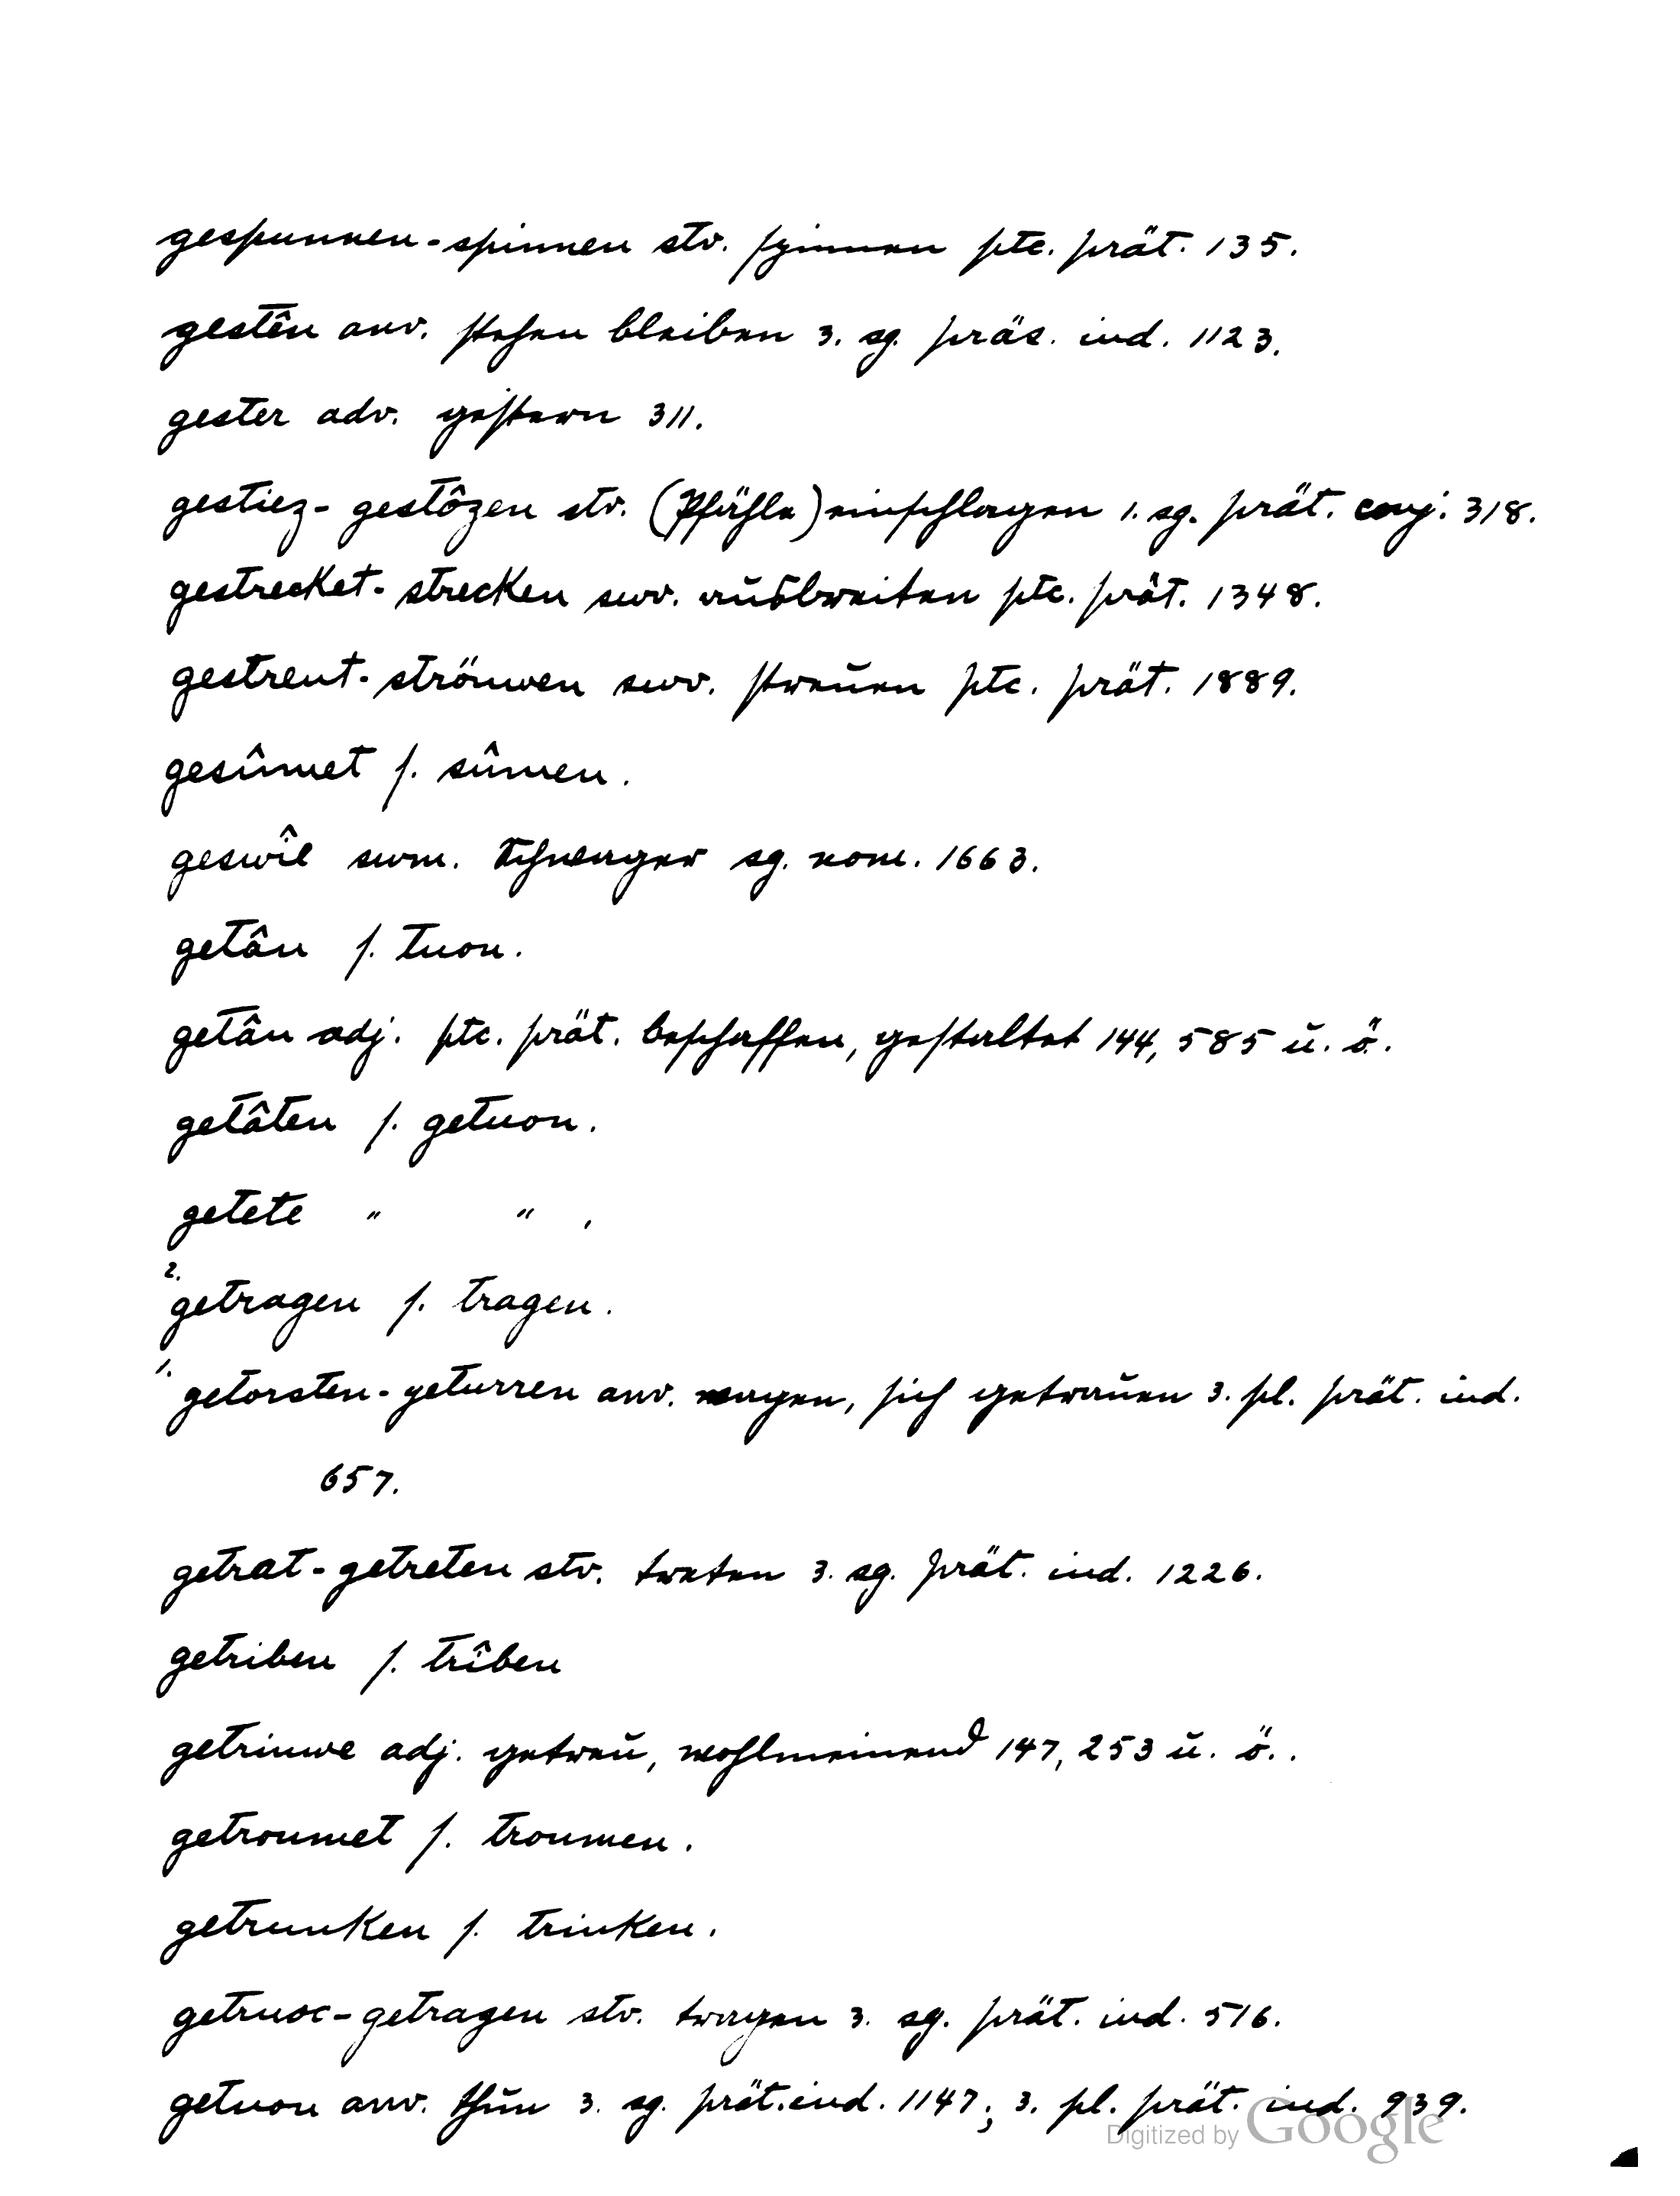 gespunnen - spinnen stv. spinnen ptc. prät. 135.
gestên anv. stehen bleiben 3. sg. präs. ind. 1123.
gester adv. gestern 311.
gestiez - gestôzen stv. (Pfähle) einschlagen 1. sg. prät. conj. 318.
gestrecket - strecken swv. ausbreiten ptc. prät. 1348.
gestreut - ströuwen swv. streuen ptc. prät. 1889.
gesûmet s. sûmen.
geswîe swm. Schwager sg. nom. 1663.
getân s. tuon.
getân adj. ptc. prät. beschaffen, gestaltet 144, 585 u. ö.
getâten s. getuon.
getete " " .
2. getragen s. tragen.
1. getorsten - geturren anv. wagen, sich getrauen 3. pl. prät. ind.
657.
getrat - getreten stv. treten 3. sg. prät. ind. 1226.
getriben s. trîben
getriuwe adj. getreu, wohlmeinend 147, 253 u. ö..
getroumet s. troumen.
getrunken s. trinken.
getruoc - getragen stv. tragen 3. sg. prät. ind. 516.
getuon anv. thun 3. sg. prät. ind. 1147; 3. pl. prät. ind. 939.
Digitized by Google